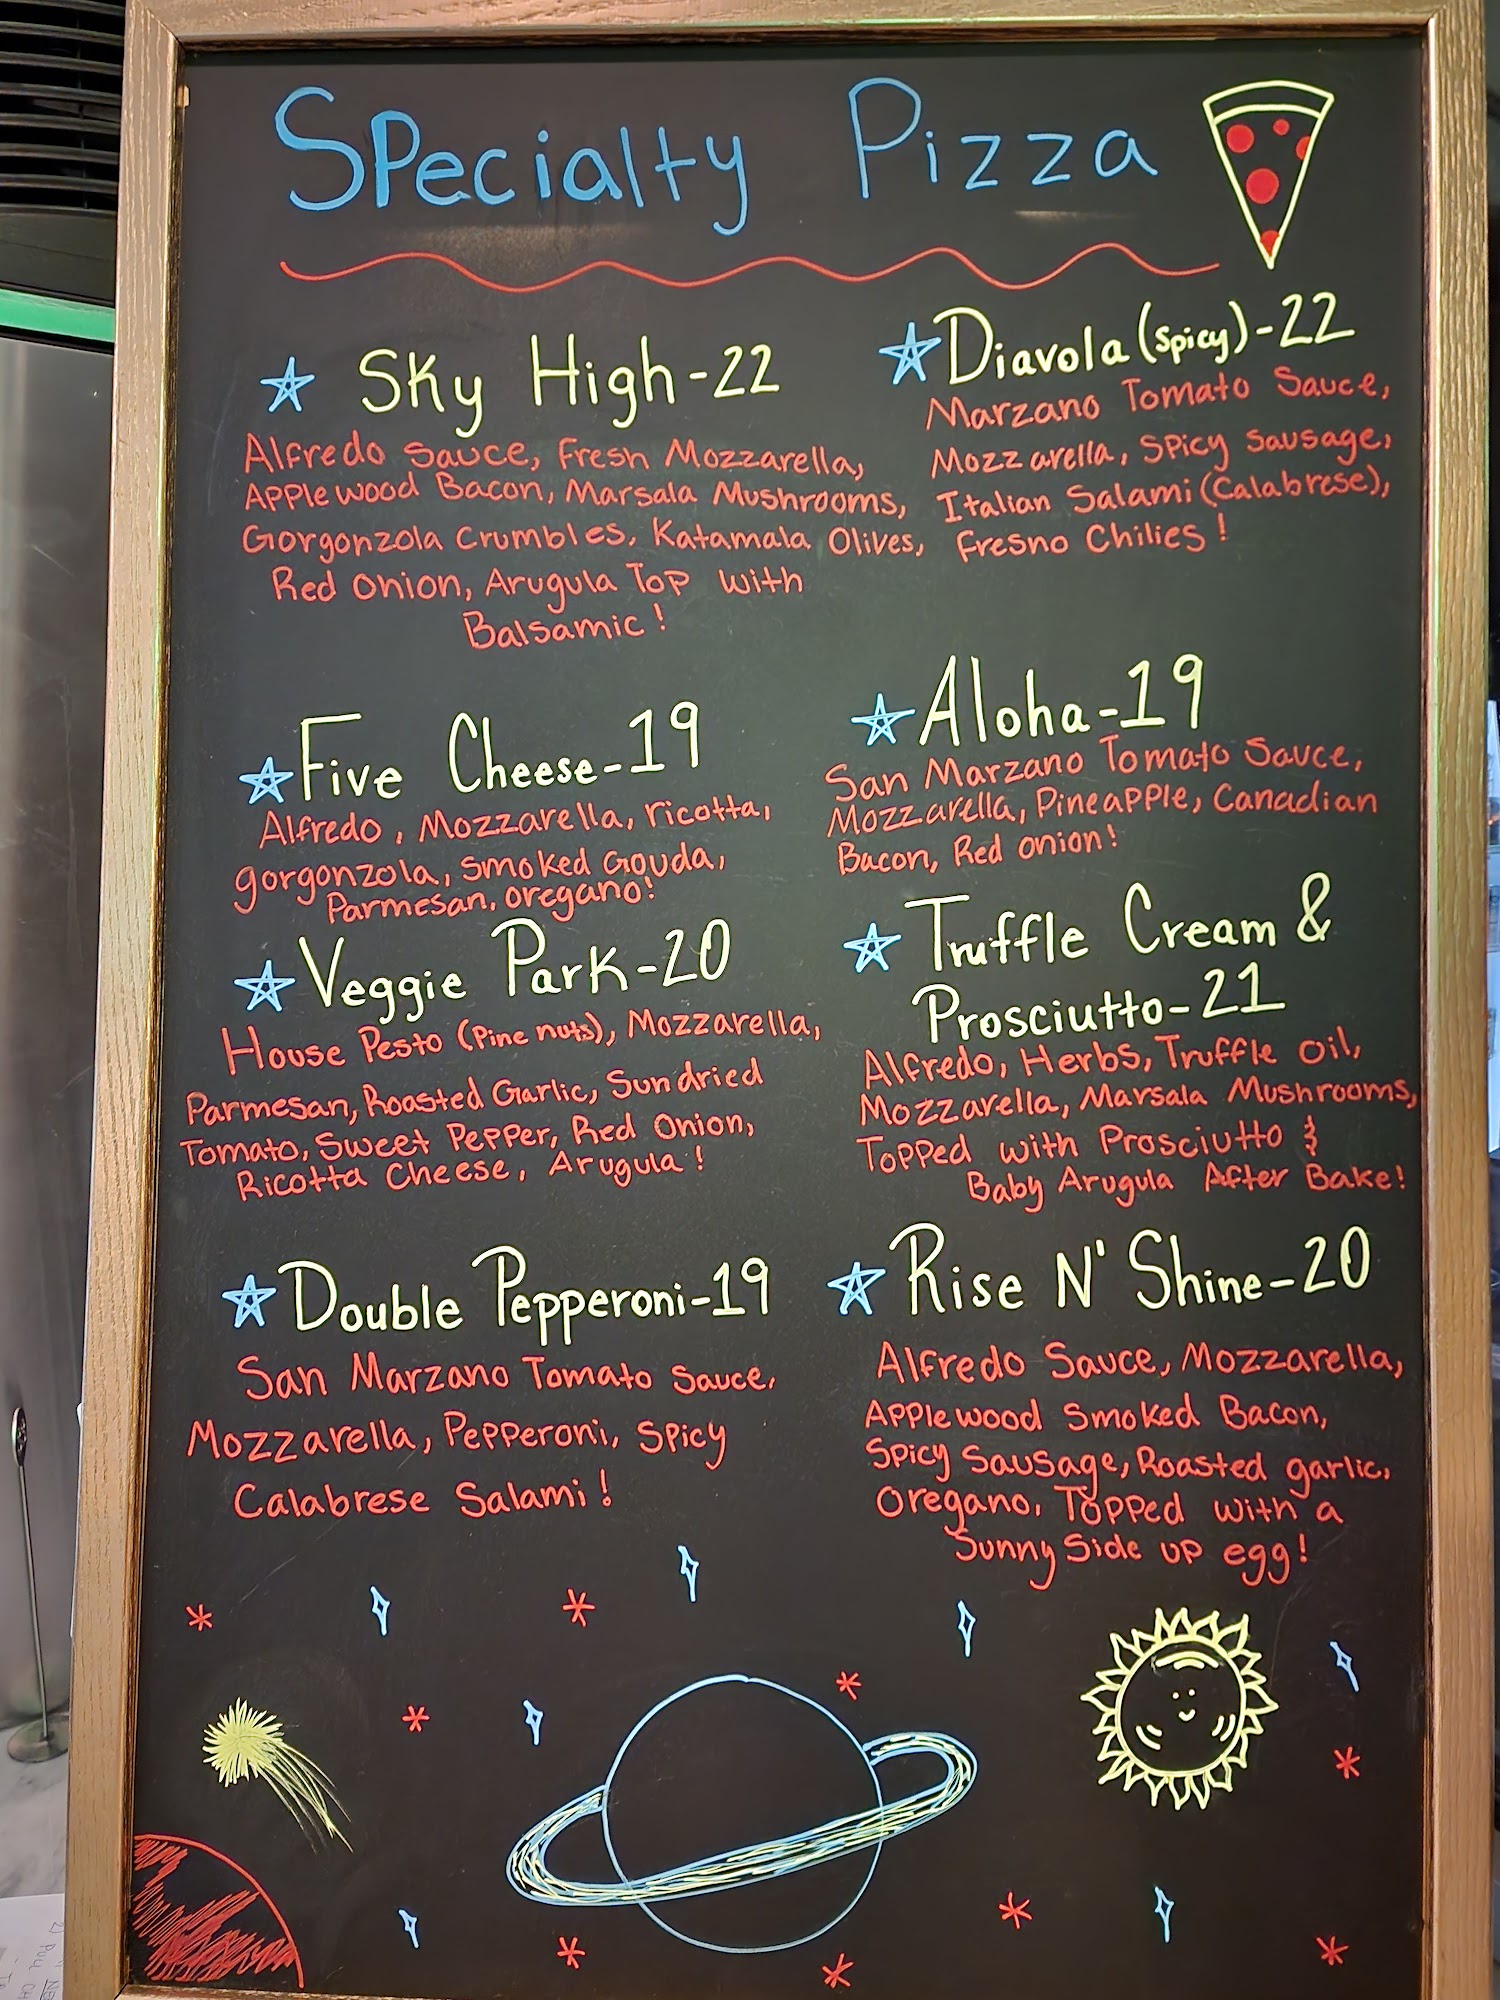 Specialty Pizza
Sky High-22
Alfredo Sauce, Fresh Mozzarella,
Applewood Bacon, Marsala Mushrooms,
Gorgonzola Crumbles, Katamala Olives,
Red Onion, Arugula Top with
Balsamic!
Diavola (Spicy)-22
Marzano Tomato Sauce,
Mozzarella, Spicy Sausage,
Italian Salami (Calabrese),
Fresno Chilies!
Five Cheese-19
Alfredo, Mozzarella, ricotta,
gorgonzola, smoked Gouda,
Parmesan, oregano!
Aloha-19
San Marzano Tomato Sauce,
Mozzarella, Pineapple, Canadian
Bacon, Red onion!
Veggie Park-20
House Pesto (Pine nuts), Mozzarella,
Parmesan, Roasted Garlic, Sundried
Tomato, Sweet Pepper, Red Onion,
Ricotta Cheese, Arugula!
Truffle Cream &
Prosciutto-21
Alfredo, Herbs, Truffle oil,
Mozzarella, Marsala Mushrooms,
Topped with Prosciutto &
Baby Arugula After Bake!
Double Pepperoni-19
San Marzano Tomato Sauce,
Mozzarella, Pepperoni, Spicy
Calabrese Salami!
Rise N' Shine-20
Alfredo Sauce, Mozzarella,
Applewood Smoked Bacon,
Spicy Sausage, Roasted garlic,
Oregano, Topped with a
Sunny Side up egg!